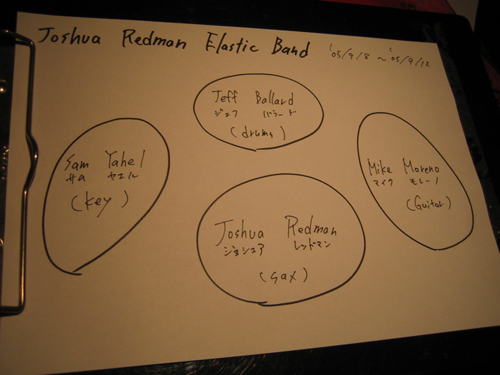 Joshua Redman Elastic Band '05/9/8 ~ '05/9/12
Jeff Ballard
ジェフ バラード
(drums)
Sam Yahel
サム ヤエル
(key)
Mike Moreno
マイク モレーノ
(Guitar)
Joshua Redman
ジョシュア レッドマン
(sax)